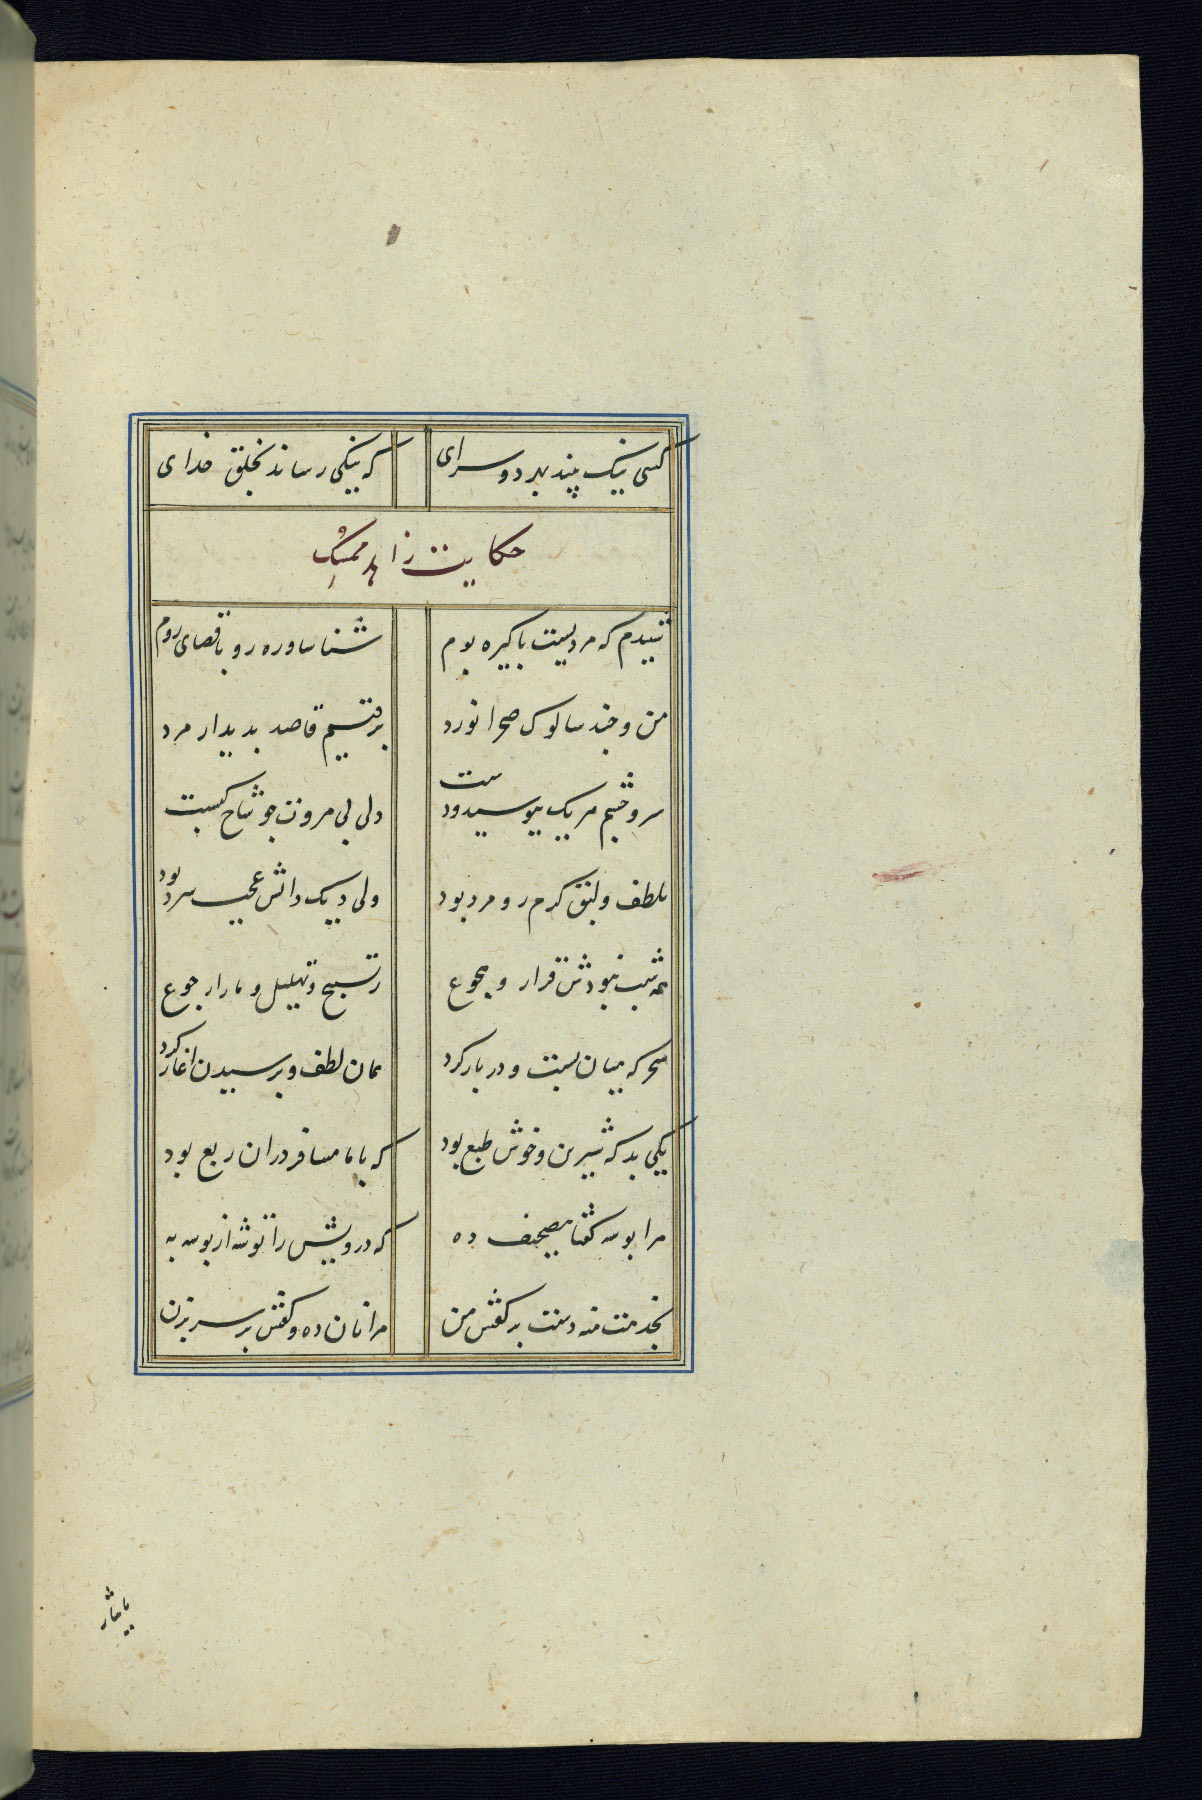 کسی نیک بیند بهر دو سرای که نیکی رساند بخلق خدای
حکایت زاهد ممسک
شنیدم که مردیست پاکیزه بوم شناسا و ره رو باقصای روم
من و چند سالوک صحرا نورد برفتیم قاصد بدیدار مرد
سر و چشم هر یک ببوسید و دست ولی بی مروت چو شاخ کبست
بلطف و لبق گرم رو مرد بود ولی دیک دانش عجب سرد بود
همه شب نبودش قرار و هجوع ز تسبیح و تهلیل و ما را ز جوع
سحر که میان بست و در باز کرد همان لطف و پرسیدن اغاز کرد
یکی بد که شیرین و خوش طبع بود که با ما مسافر دران ربع بود
مرا بوسه گفتا بتصحیف ده که درویش را توشه از بوسه به
بخدمت منه دست بر کفش من مرا نان ده و کفش بر سر بزن
بایثار